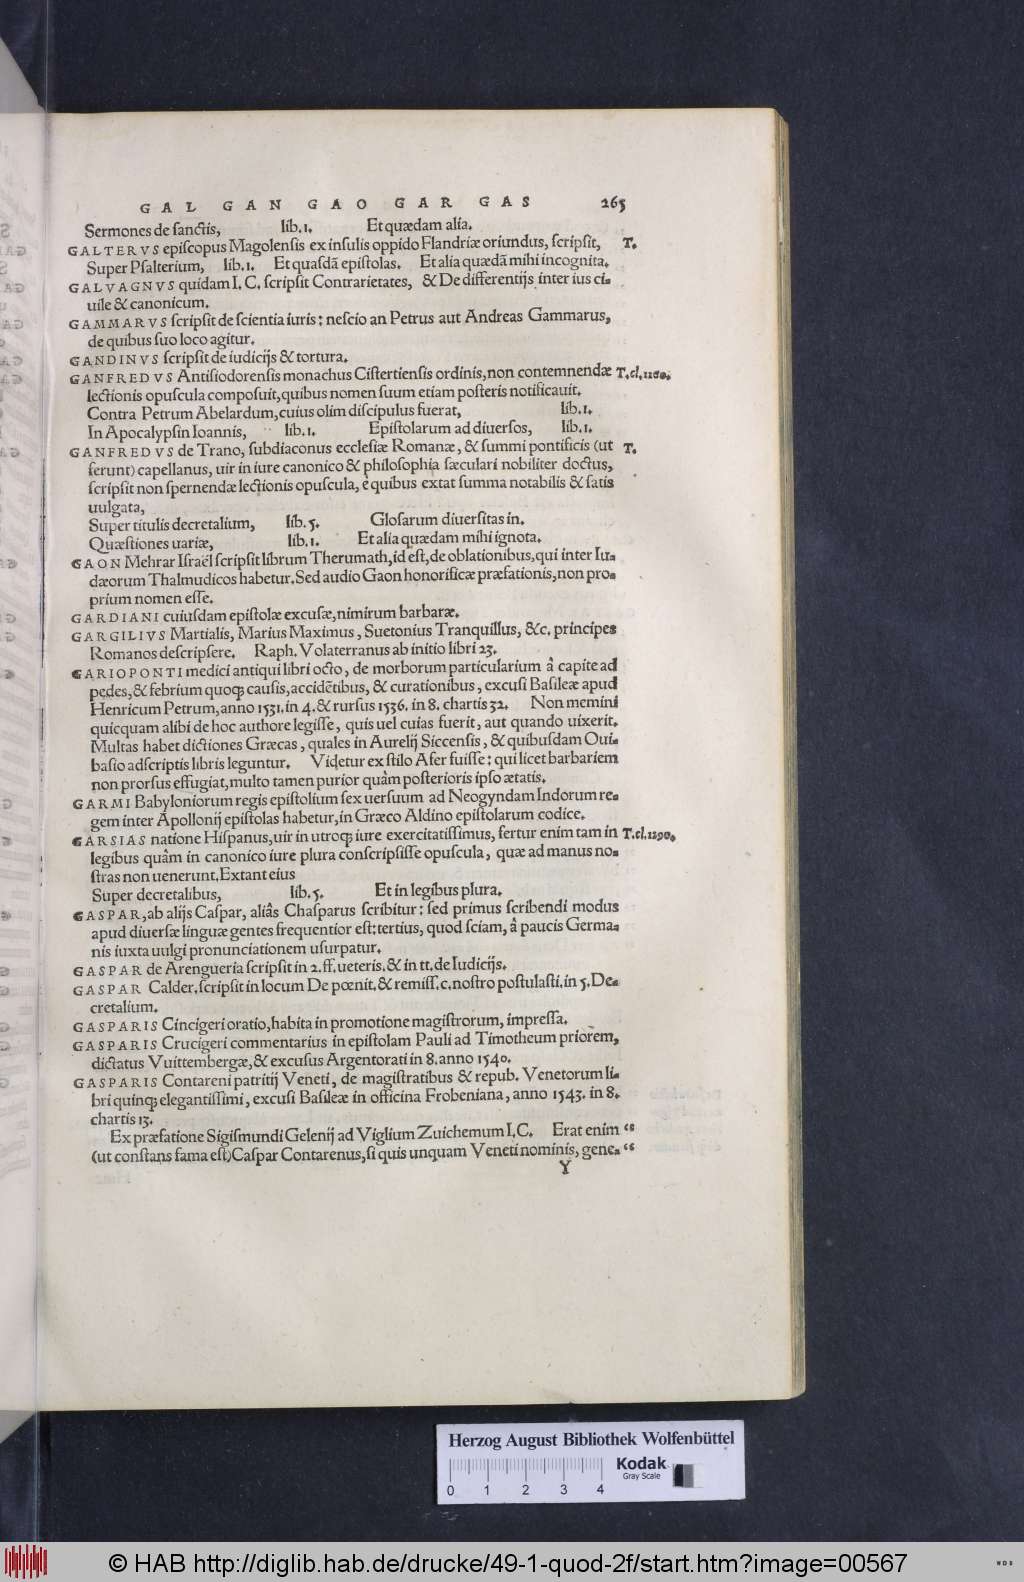 GAL GAN GAO GAR GAS 265
Sermones de sanctis, lib.1. Et quædam alia.
GALTERVS episcopus Magolensis ex insulis oppido Flandriæ oriundus, scripsit, T.
Super Psalterium, lib.1. Et quasdā epistolas. Et alia quædā mihi incognita.
GALVAGNVS quidam I. C. scripsit Contrarietates, & De differentijs inter ius ci-
uile & canonicum.
GAMMARVS scripsit de scientia iuris: nescio an Petrus aut Andreas Gammarus,
de quibus suo loco agitur.
GANDINVS scripsit de iudicijs & tortura.
GANFREDVS Antisiodorensis monachus Cistertiensis ordinis, non contemnendæ T.cl.1160.
lectionis opuscula composuit, quibus nomen suum etiam posteris notificauit.
Contra Petrum Abelardum, cuius olim discipulus fuerat, lib.1.
In Apocalypsin Ioannis, lib.1. Epistolarum ad diuersos, lib.1.
GANFREDVS de Trano, subdiaconus ecclesiæ Romanæ, & summi pontificis (ut T.
ferunt) capellanus, uir in iure canonico & philosophia sæculari nobiliter doctus,
scripsit non spernendæ lectionis opuscula, è quibus extat summa notabilis & satis
uulgata,
Super titulis decretalium, lib.5. Glosarum diuersitas in.
Quæstiones uariæ, lib.1. Et alia quædam mihi ignota.
GAON Mehrar Israël scripsit librum Therumath, id est, de oblationibus, qui inter Iu-
dæorum Thalmudicos habetur. Sed audio Gaon honorificæ præfationis, non pro-
prium nomen esse.
GARDIANI cuiusdam epistolæ excusæ, nimirum barbaræ.
GARGILIVS Martialis, Marius Maximus, Suetonius Tranquillus, &c. principes
Romanos descripsere. Raph. Volaterranus ab initio libri 23.
GARIOPONTI medici antiqui libri octo, de morborum particularium à capite ad
pedes, & febrium quoq; causis, accidētibus, & curationibus, excusi Basileæ apud
Henricum Petrum, anno 1531. in 4. & rursus 1536. in 8. chartis 32. Non memini
quicquam alibi de hoc authore legisse, quis uel cuias fuerit, aut quando uixerit.
Multas habet dictiones Græcas, quales in Aurelij Siccensis, & quibusdam Oui-
basio adscriptis libris leguntur. Videtur ex stilo Afer fuisse: qui licet barbariem
non prorsus effugiat, multo tamen purior quàm posterioris ipso ætatis.
GARMI Babyloniorum regis epistolium sex uersuum ad Neogyndam Indorum re-
gem inter Apollonij epistolas habetur, in Græco Aldino epistolarum codice.
GARSIAS natione Hispanus, uir in utroq; iure exercitatissimus, fertur enim tam in T.cl.1290.
legibus quâm in canonico iure plura conscripsisse opuscula, quæ ad manus no-
stras non uenerunt. Extant eius
Super decretalibus, lib.5. Et in legibus plura.
GASPAR, ab alijs Caspar, aliâs Chasparus scribitur: sed primus scribendi modus
apud diuersæ linguæ gentes frequentior est: tertius, quod sciam, â paucis Germa-
nis iuxta uulgi pronunciationem usurpatur.
GASPAR de Arengueria scripsit in 2. ff. ueteris. & in tt. de Iudicijs.
GASPAR Calder. scripsit in locum De pœnit. & remiss. c. nostro postulasti, in 5. De-
cretalium.
GASPARIS Cincigeri oratio, habita in promotione magistrorum, impressa.
GASPARIS Crucigeri commentarius in epistolam Pauli ad Timotheum priorem,
dictatus Vuittembergæ, & excusus Argentorati in 8. anno 1540.
GASPARIS Contareni patritij Veneti, de magistratibus & repub. Venetorum li-
bri quinq; elegantissimi, excusi Basileæ in officina Frobeniana, anno 1543. in 8.
chartis 13.
Ex præfatione Sigismundi Gelenij ad Viglium Zuichemum I.C. Erat enim “
(ut constans fama est) Caspar Contarenus, si quis unquam Veneti nominis, gene- “
Y
Herzog August Bibliothek Wolfenbüttel
Kodak
Gray Scale
0 1 2 3 4
© HAB http://diglib.hab.de/drucke/49-1-quod-2f/start.htm?image=00567
WDB